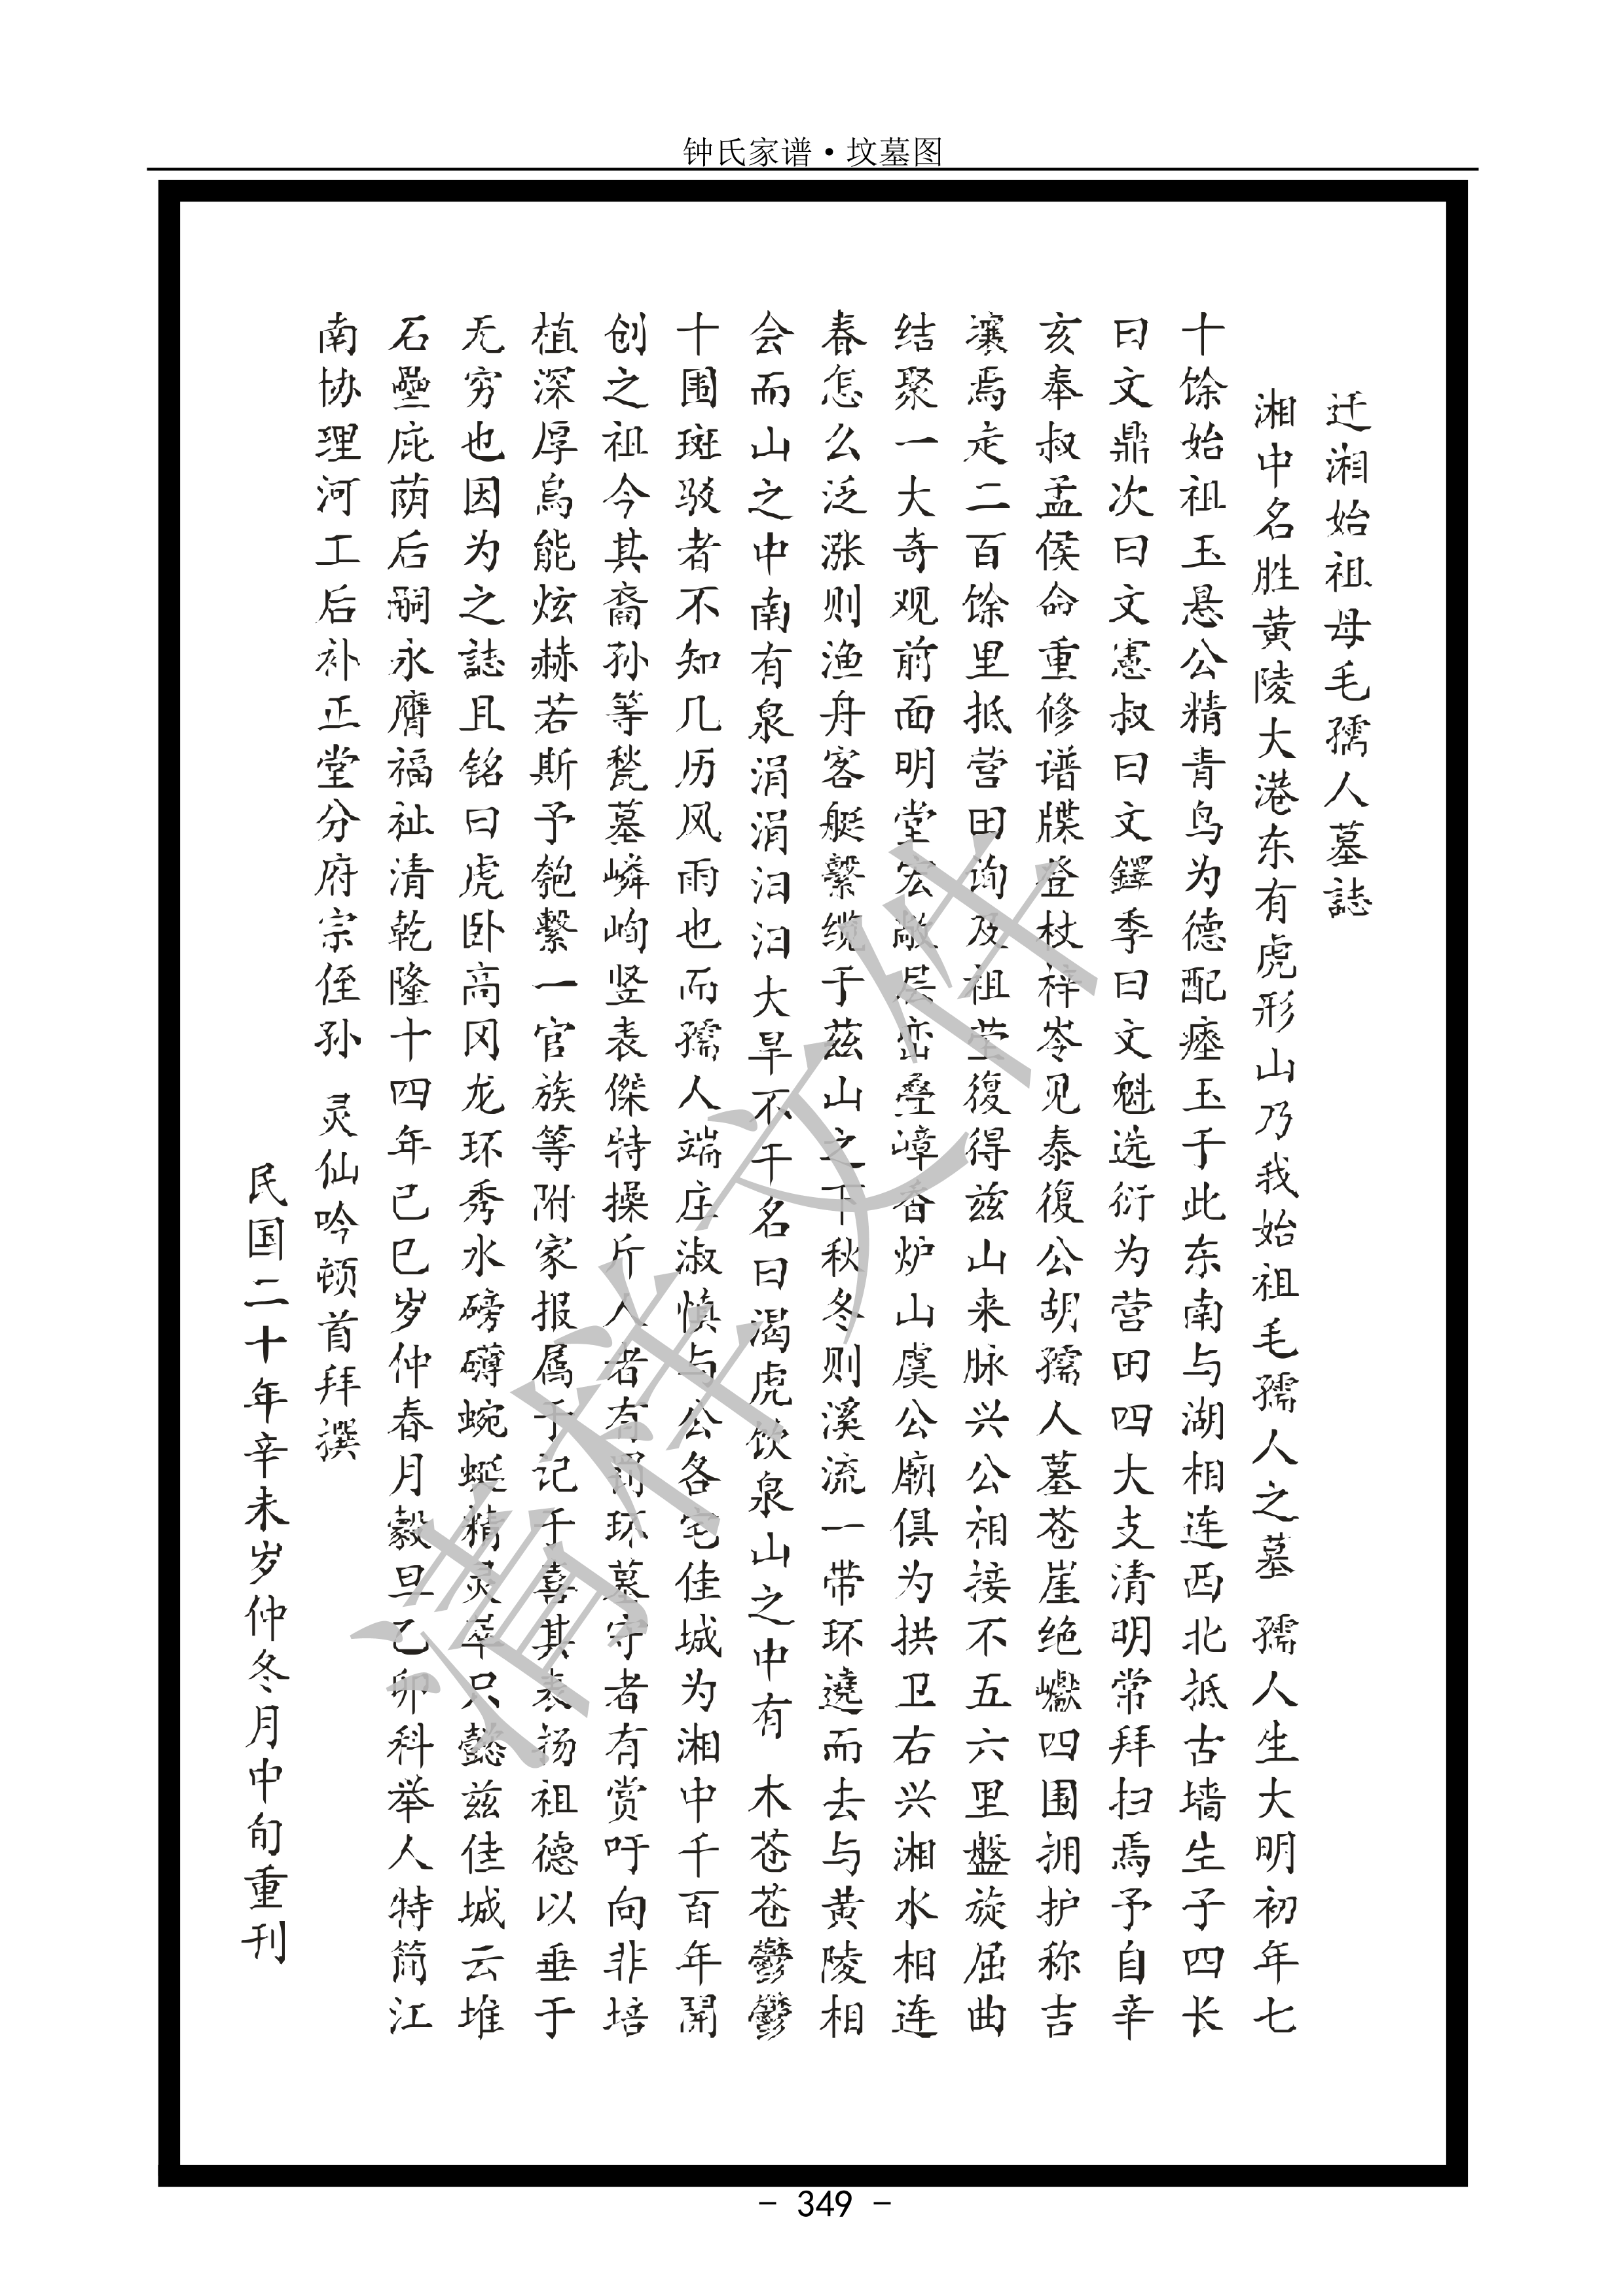 钟氏家谱·坟墓图
迁湘始祖母毛孺人墓誌
湘中名胜黄陵大港东有虎形山乃我始祖毛孺人之墓 孺人生大明初年七
十馀始祖玉悬公精青鸟为德配瘗玉于此东南与湖相连西北抵古墙生子四长
曰文鼎次曰文憲叔曰文鐸季曰文魁选衍为营田四大支清明常拜扫焉予自辛
亥奉叔孟侯命重修谱牒登杖梓岑见泰復公胡孺人墓苍崖绝巘四围拥护称吉
瀼焉定二百馀里抵营田询及祖茔復得兹山来脉兴公相接不五六里盤旋屈曲
结聚一大奇观前面明堂宏敞层峦叠嶂香炉山虞公廟俱为拱卫右兴湘水相连
春怎么泛涨则渔舟客艇繫缆于茲山之下秋冬则溪流一带环遶而去与黄陵相
会而山之中南有泉涓涓汩汩大旱不干名曰渴虎饮泉山之中有 木苍苍鬱鬱
十围斑驳者不知几历风雨也而孺人端庄淑慎与公各宅佳城为湘中千百年開
创之祖今其裔孙等甃墓嶙峋竖表傑特操斤人者有罰环墓守者有赏吁向非培
植深厚烏能炫赫若斯予匏繫一官族等附家报属于记于喜其表扬祖德以垂于
无穷也因为之誌且铭曰虎卧高冈龙环秀水磅礴蜿蜒精灵萃只懿兹佳城云堆
石壘庇荫后嗣永膺福祉清乾隆十四年己巳岁仲春月穀旦乙卯科举人特简江
南协理河工后补正堂分府宗侄孙 灵仙吟顿首拜撰
民国二十年辛未岁仲冬月中旬重刊
清样文件
- 349 -